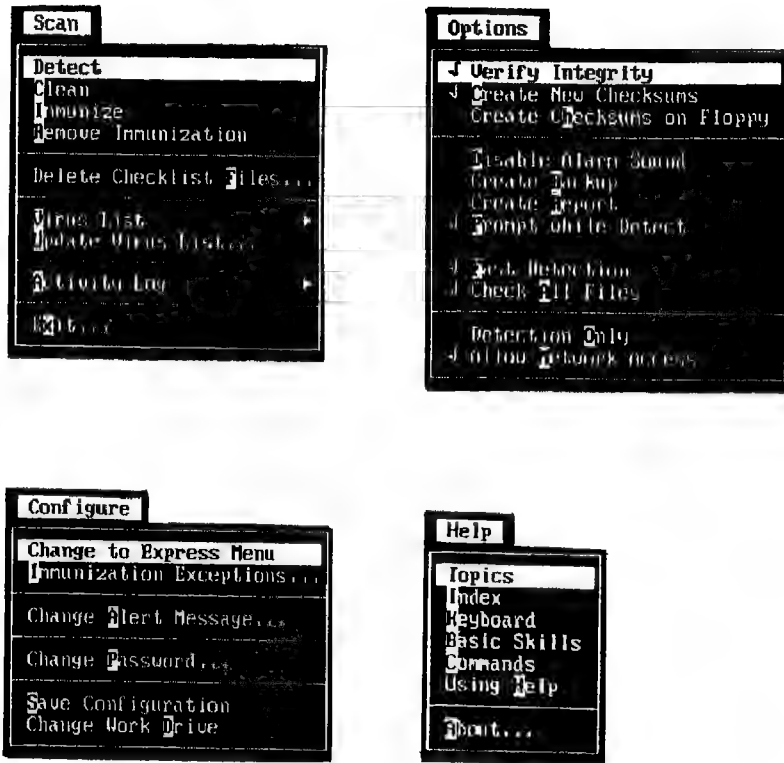 Scan
Detect
Clean
Immunize
Remove Immunization
Delete Checklist Files...
Virus List
Update Virus List...
Activity Log
Exit...
Options
√ Verify Integrity
√ Create New Checksums
Create Checksums on Floppy
Disable Alarm Sound
Create Backup
Create Report
√ Prompt while Detect
√ Fast Detection
√ Check All Files
Detection Only
√ Allow Network Access
Configure
Change to Express Menu
Immunization Exceptions...
Change Alert Message...
Change Password...
Save Configuration
Change Work Drive
Help
Topics
Index
Keyboard
Basic Skills
Commands
Using Help
About...